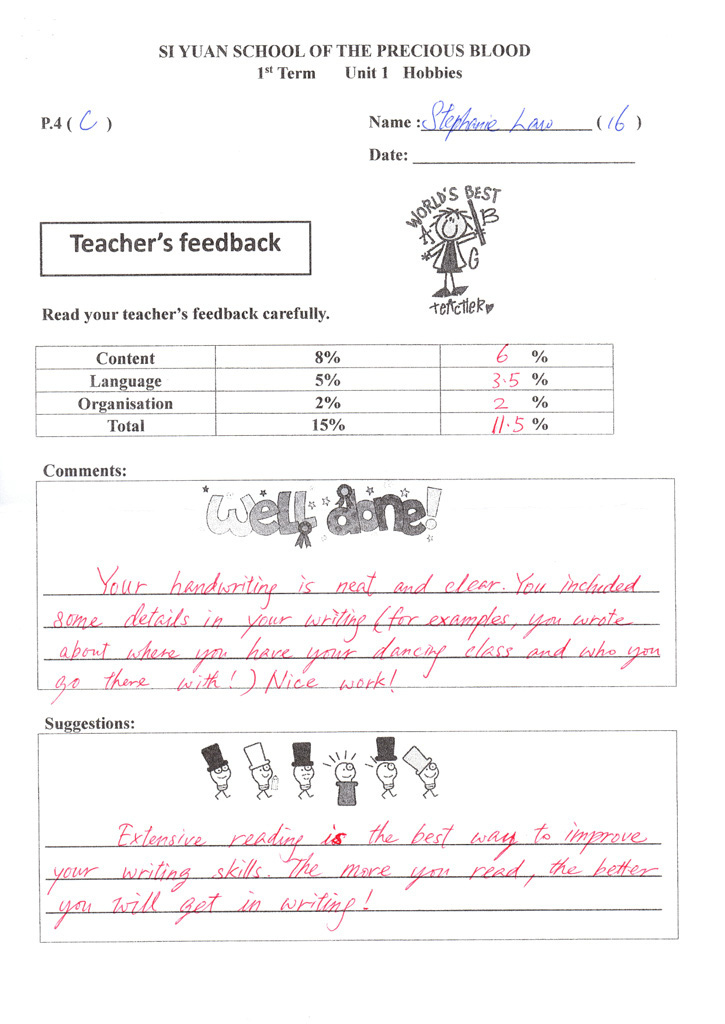 SI YUAN SCHOOL OF THE PRECIOUS BLOOD
1st Term Unit 1 Hobbies
P.4 ( C ) Name : Stephanie Law ( 16 )
Date:
WORLD'S BEST
A B
C
TEACHER
Teacher's feedback
Read your teacher's feedback carefully.
Content 8% 6 %
Language 5% 3.5 %
Organisation 2% 2 %
Total 15% 11.5 %
Comments:
Well done!
Your handwriting is neat and clear. You included
some details in your writing (for examples, you wrote
about where you have your dancing class and who you
go there with!) Nice work!
Suggestions:
Extensive reading is the best way to improve
your writing skills. The more you read, the better
you will get in writing!